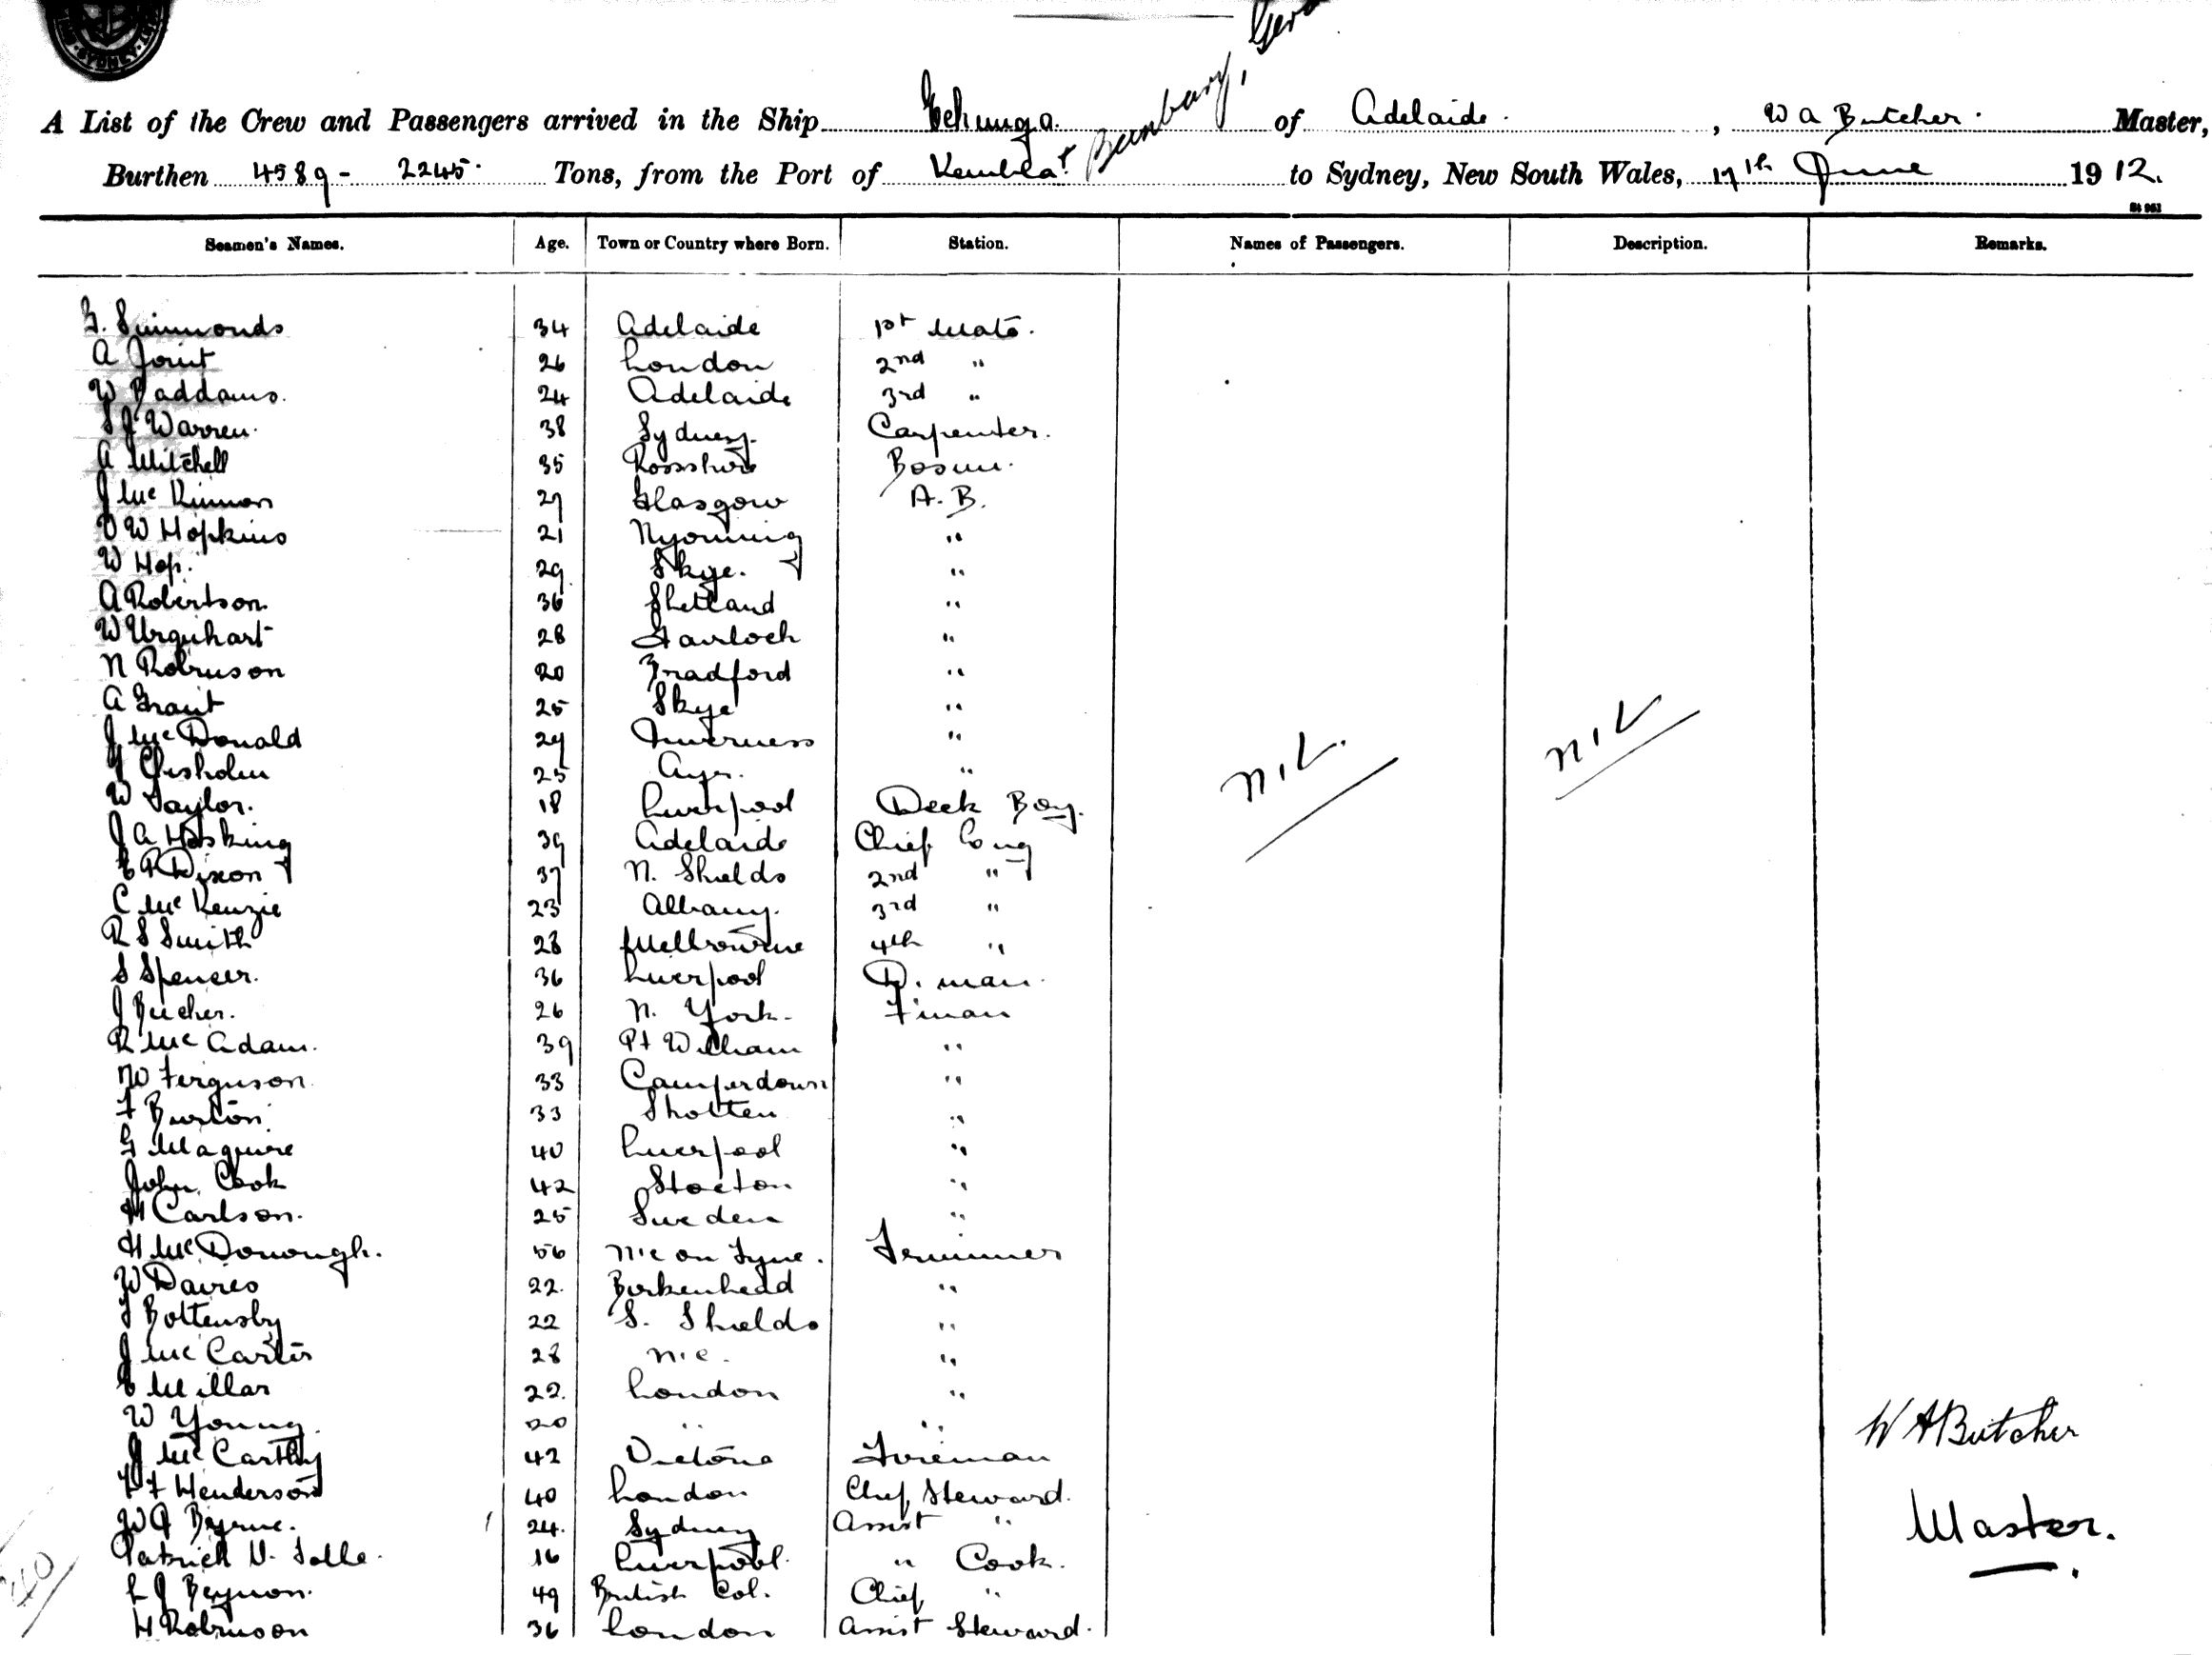 SYDNEY
A List of the Crew and Passengers arrived in the Ship Echunga of Adelaide, W A Butcher Master,
Bunbury,
Burthen 4589 - 2245 Tons, from the Port of Kembla to Sydney, New South Wales, 17th June 1912.
Seamen's Names. Age. Town or Country where Born. Station. Names of Passengers. Description. Remarks.
G. Simmonds 34 Adelaide 1st Mate.
A Joint 26 London 2nd "
W Baddams. 24 Adelaide 3rd "
S J Warren. 38 Sydney. Carpenter.
A Mitchell 35 Rossshire Bosun.
J McKinnon 27 Glasgow A.B.
W Hopkins 21 Wyoming "
W Hop. 29 Skye. "
A Robertson. 36 Shetland "
W Urquhart 28 Gairloch "
N Robinson 20 Bradford "
A Grant 25 Skye "
J McDonald 24 Inverness "
J Chisholm 25 Ayr. "
W Taylor. 18 Liverpool Deck Boy.
J A Hosking 39 Adelaide Chief Eng
E R Dixon 37 N. Shields 2nd "
C McKenzie 23 Albany. 3rd "
R S Smith 28 Melbourne 4th "
S Spencer. 36 Liverpool D. man.
J 26 N. York. Fman
R McAdam. 39 Pt William "
W Ferguson 33 Camperdown "
F Burton. 33 Shotten "
G Maguire 40 Liverpool "
John Cook 42 Stocton "
H Carlson. 25 Sweden "
H McDonough. 56 N'c on Tyne. Trimmer
W Davies 22. Birkenhead "
T Boltensby 22 S. Shields "
J McCarter 28 N.c. "
E Millar 22. London "
W Young. 20 " "
J McCarthy 42 Victoria Foreman
F Henderson 40 London Chief Steward.
W A Byrne. 24. Sydney Assist "
Patrick 16 Liverpool. " Cook.
L J Beynon. 49 British Col. Chief "
H Robinson 36 London Assist Steward.
NIL.
NIL
W A Butcher
Master.
40